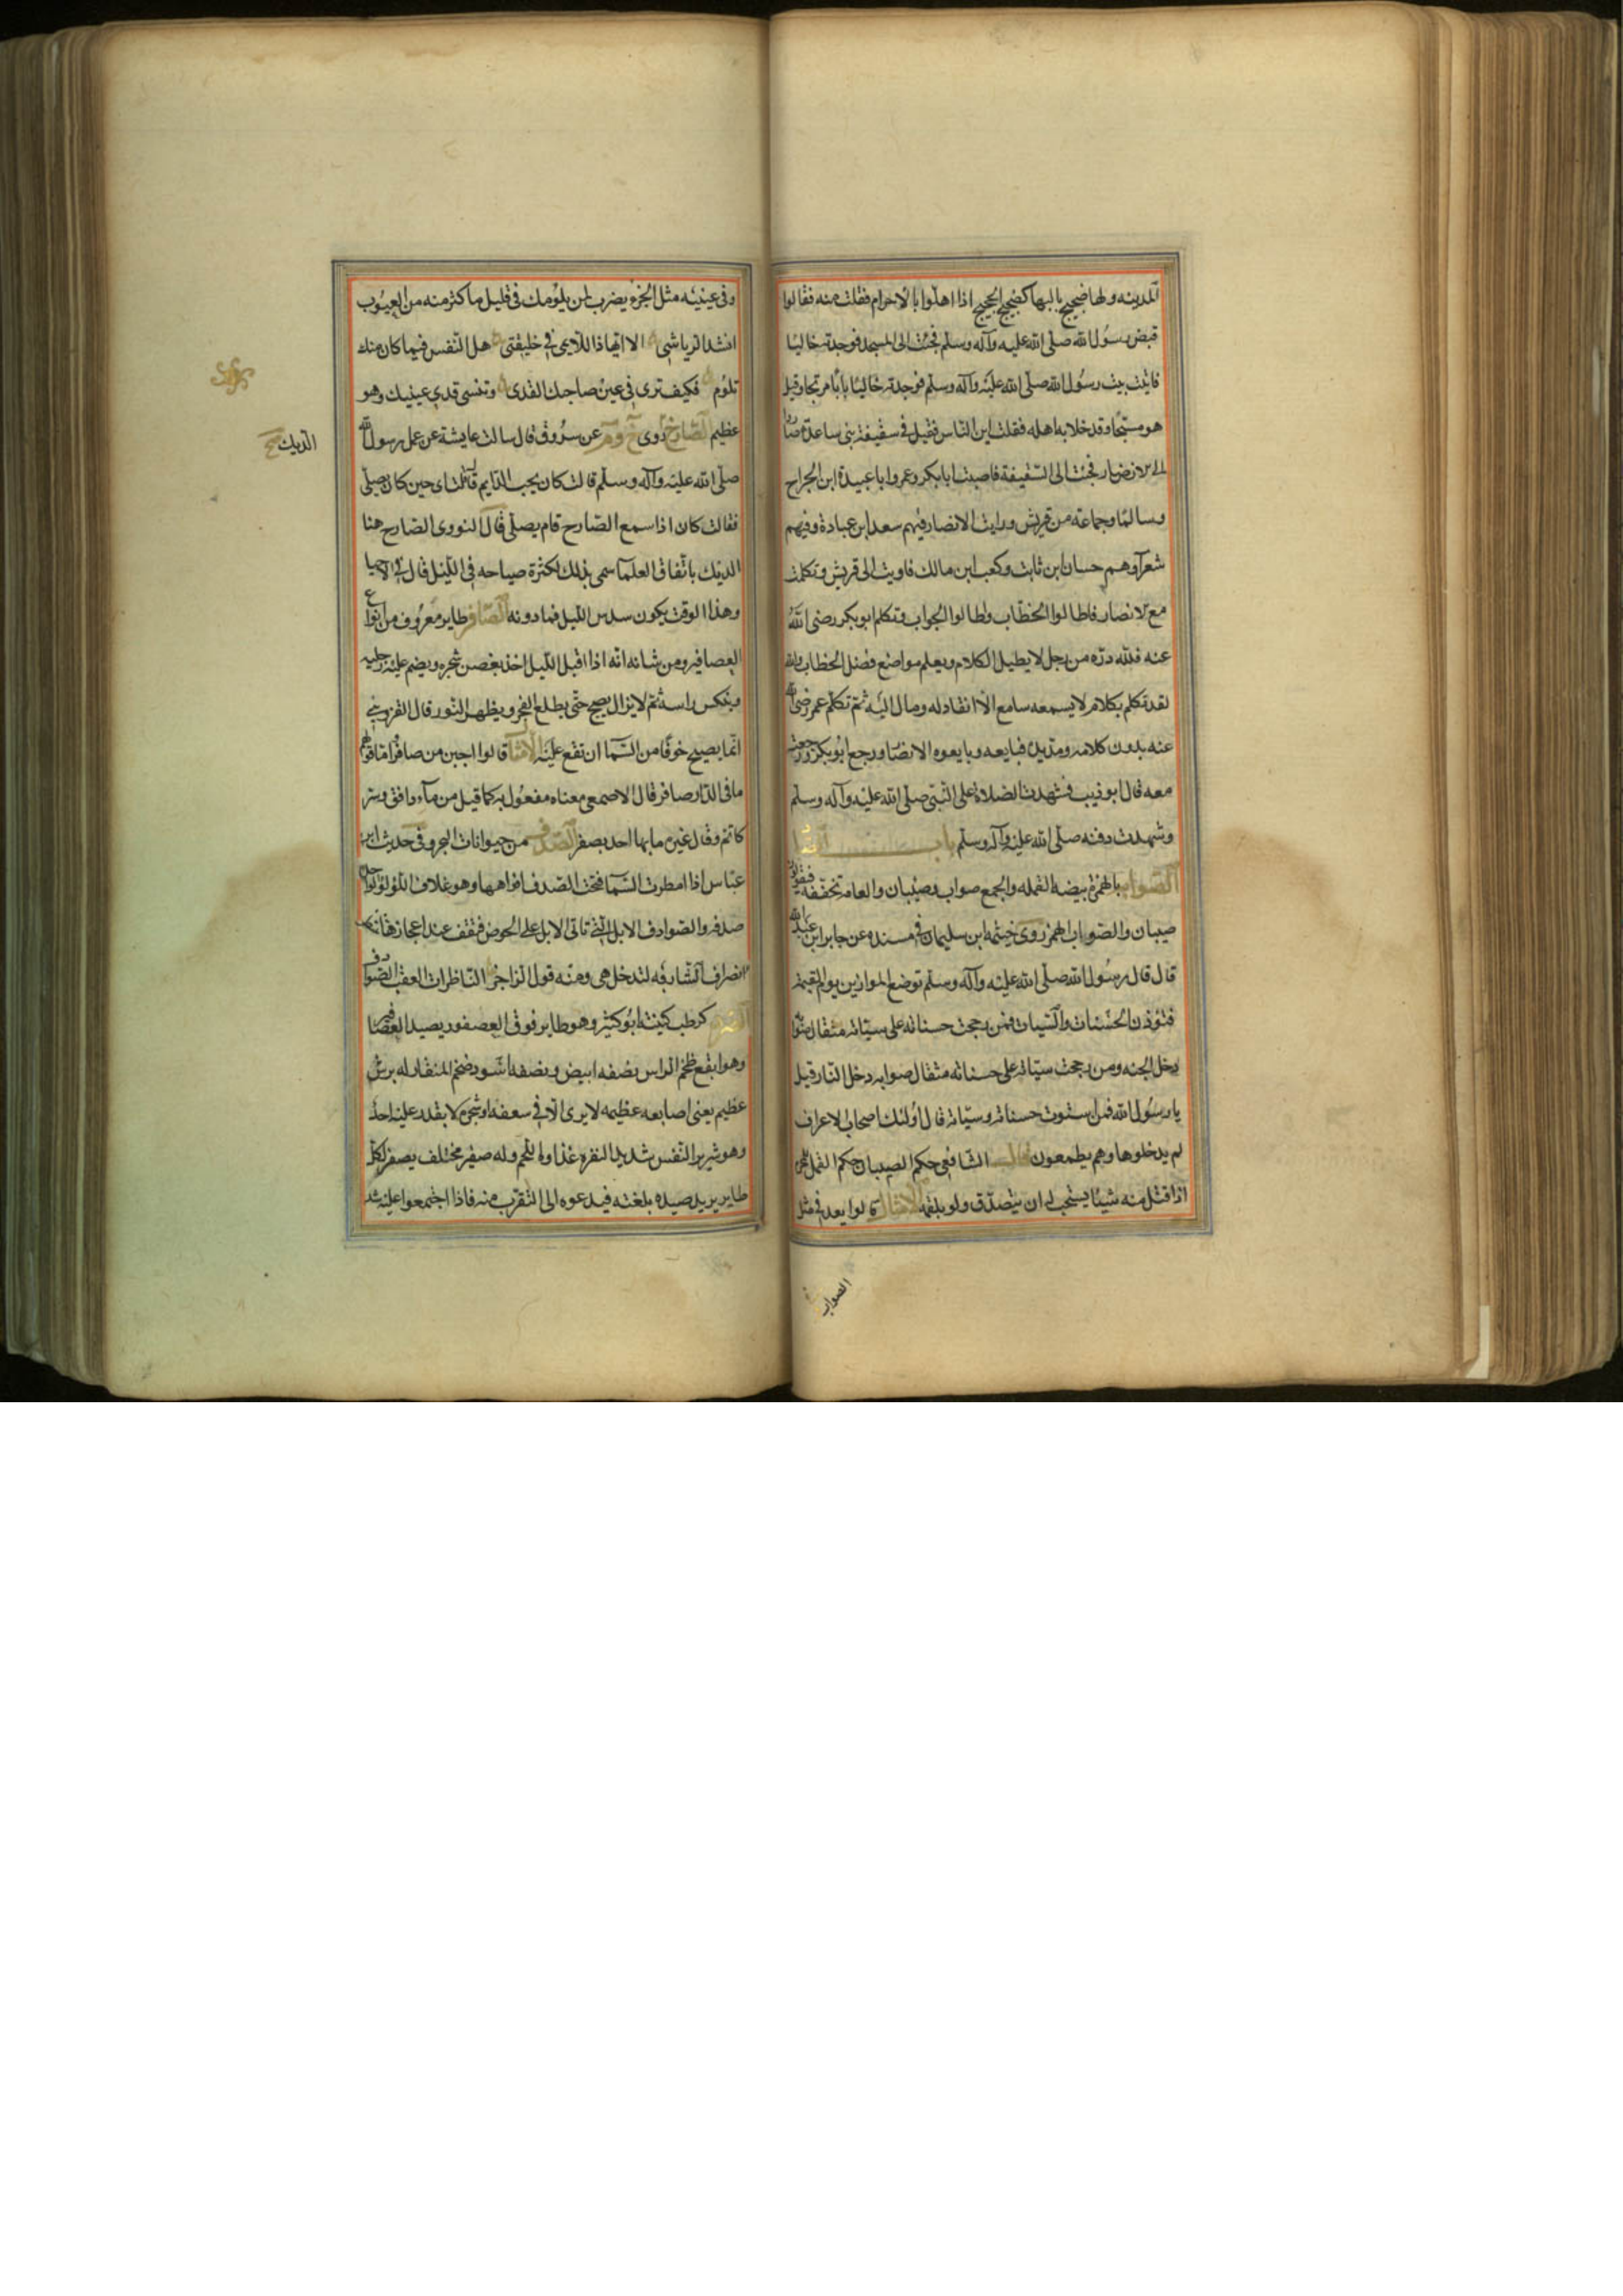 المدينه ولها ضجيج بالبها كضجيج الحجيج اذا اهلوا بالاحرام فقلت منه فقالوا
قبض رسول الله صلى الله عليه وآله وسلم فجئت الى المسجد فوجدته خاليا
فاتيت بيت رسول الله صلى الله عليه وآله وسلم فوجدته خاليا بابا مرتجا وقيل
هو مسجا وقد خلا به اهله فقلت اين الناس فقيل في سقيفة بني ساعدة
الانصار فجئت الى السقيفة فاصبت ابا بكر وعمر وابا عبيدة ابن الجراح
وسالما وجماعه من قريش ورايت الانصار فيهم سعد ابن عبادة وفيهم
شعرآوهم حسان ابن ثابت وكعب ابن مالك فاويت الى قريش وتكلمت
مع لانصار فاطالوا الخطاب وطالوا الجواب وتكلم ابو بكر رضى الله
عنه فلله دره من رجل لا يطيل الكلام ويعلم مواضع فصل الخطاب والله
لقد تكلم بكلام لا يسمعه سامع الا انقاد له ومال اليه ثم تكلم عمر رضى الله
عنه بدون كلامه ومد يده فبايعه وبايعوه الانصار ورجع ابو بكر ورجعت
معه قال ابو ذيب فشهدت الصلاة على النبي صلى الله عليه وآله وسلم
وشهدت دفنه صلى الله عليه وآله وسلم باب
الصواب بالهمزة بيضه القمله والجمع صواب وصيبان والعامة تخففه فتقول
صيبان والصواب الهمز روى خيثمه ابن سليمان في مسنده عن جابر ابن عبد الله
قال قال رسول الله صلى الله عليه وآله وسلم توضع الموازين يوم القيمة
فتوزن الحسنات والسيات فمن رجحت حسناته على سيئاته مثقال صوابه
دخل الجنه ومن رجحت سيئاته على حسناته مثقال صوابه دخل النار قيل
يا رسول الله فمن استوت حسناته وسيئاته قال اولئك اصحاب الاعراف
لم يدخلوها وهم يطمعون قال الشافعي حكم الصيبان حكم القمل
اذا قتل منه شيئا يستحب له ان يتصدق ولو بلقمه الامثال قالوا يعد في مثل
الصواب
وفي عينيه مثل الجرة يضرب لمن يلومك في قليل ما كثر منه من العيوب
انشد الرياشي الا ايهاذا اللايمي في خليقتي هل النفس فيما كان منك
تلوم فكيف ترى في عين صاحبك القذى وتنسى قذى عينيك وهو
عظيم الصارخ روى خ وم عن مسروق قال سالت عايشة عن عمل رسول الله
صلى الله عليه وآله وسلم قالت كان يحب الدايم قلت اى حين كان يصلى
فقالت كان اذا سمع الصارخ قام يصلي قال النووى الصارخ هنا
الديك باتفاق العلما سمى بذلك لكثرة صياحه في الليل قال في الاحيا
وهذا الوقت يكون سدس الليل فما دونه الصافر طاير معروف من انواع
العصافير ومن شانه انه اذا اقبل الليل اخذ بغصن شجره ويضم عليه رجليه
وينكس راسه ثم لا يزال يصيح حتى يطلع الفجر ويظهر النور قال القزويني
انما يصيح خوفا من السما ان تقع عليه الامثال قالوا اجبن من صافر اما قولهم
ما في الدار صافر قال الاصمعي معناه مفعول به كما قيل من مآء دافق وسر
كاتم وقال غيره ما بها احد يصفر الصدف من حيوانات البحر وفي حديث ابن
عباس اذا امطرت السما فتحت الصدف افواهها وهو غلاف اللولو الواحدة
صدفه والصوادف الابل التي تاتي الابل على الحوض فتقف عند اعجازها تنتظر
انصراف الشاربه لتدخل هي ومنه قول الراجز الناظرات العقب الصوادف
كرطب كنيته ابو كثير وهو طاير فوق العصفور يصيد العصافير
وهو ابقع ضخم الراس نصفه ابيض ونصفه اسود ضخم المنقار له برثن
عظيم يعنى اصابعه عظيمه لا يرى الا في سعفه او شجره لا يقدر عليه احد
وهو شرير النفس شديد النفره غذاوه اللحم وله صفير مختلف يصفر لكل
طاير يريد صيده بلغته فيدعوه الى التقرب منه فاذا اجتمعوا عليه شد
الديك